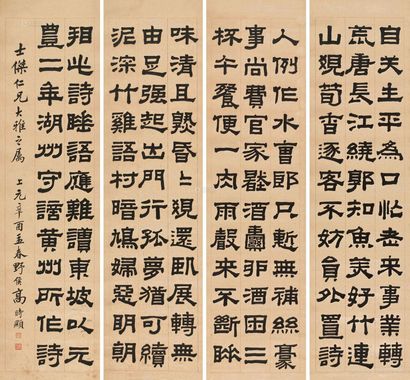 自笑生平為口忙老來事業轉
荒唐長江繞郭知魚美好竹連
山覺筍香逐客不妨員外置詩
人例作水曹郎只慚無補絲豪
事尚費官家壓酒囊卯酒困三
杯午餐便一肉雨聲來不斷睡
味清且熟昏昏覺還臥展轉無
由足強起出門行孤夢猶可續
泥深竹雞語村暗鳩婦惡明朝
看此詩睡語應難讀東坡以元
豐二年湖州守謫黃州所作詩
士傑仁兄大雅之屬 上元辛酉孟春野侯高時顯